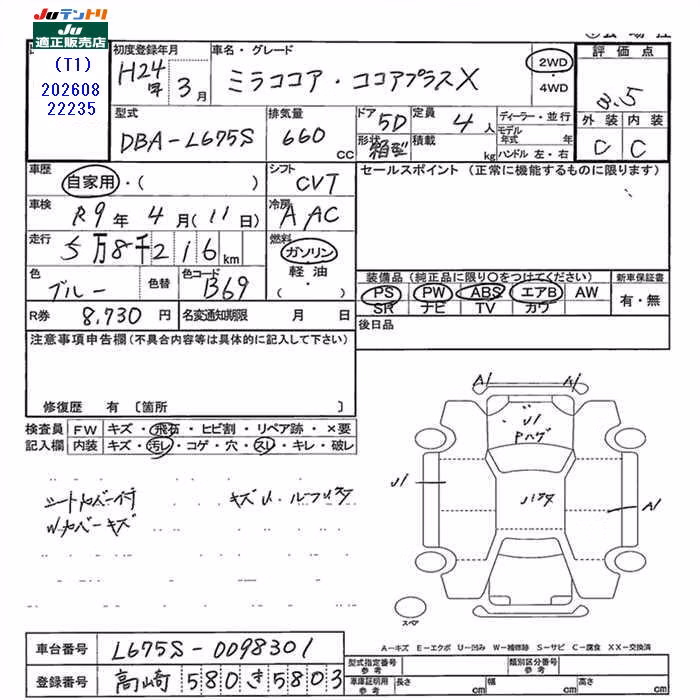 Juテントリ
Ju
適正販売店
(T1)
202608
22235
初度登録年月
H24年 3月
車名・グレード
ミラココア・ココアプラスX
2WD
・
4WD
評価点
3.5
外装 内装
C C
型式
DBA-L675S
排気量
660 CC
ドア
5D
形状
箱型
定員
4人
積載
kg
ディーラー・並行
モデル年式 年
ハンドル 左・右
車歴
自家用・( )
シフト
CVT
セールスポイント (正常に機能するものに限ります)
車検
R9年 4月(11日)
冷房
AAC
走行
5万8千216km
燃料
ガソリン
軽油
( ・ )
色
ブルー
色替
色コード
B69
装備品(純正品に限り○をつけてください)
PS PW ABS エアB AW
SR ナビ TV カワ
新車保証書
有・無
R券 8,730円
名変通知期限 月 日
後日品
注意事項申告欄(不具合内容等は具体的に記入して下さい)
修復歴 有〔箇所 〕
検査員 FW キズ・飛石・ヒビ割・リペア跡・×要
記入欄 内装 キズ・汚レ・コゲ・穴・スレ・キレ・破レ
シートカバー付
Wカバーキズ
キズU
A1 A1
U1
Pハゲ
U1
A1
スペア
A-キズ E-エクボ U-凹み W-補修跡 S-サビ C-腐食 XX-交換済
車台番号 L675S-0098301
登録番号 高崎 580 き 5803
型式指定番号
参考
類別区分番号
参考
車庫証明用
参考
長さ cm
幅 cm
高さ cm